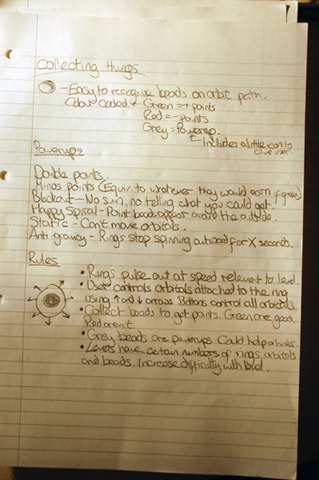 Collecting things
- Easy to recognise beads on orbit path.
Colour coded. Green = + points
Red = - points
Grey = Powerup
Includes a little icon to
give user
Powerups
Double points.
Minos points (Equiv. to whatever they would earn if green)
Blackout - No sun, no telling what you could get.
Happy Spiral - Point beads appear around the outside.
Static - Can't move orbitals.
Anti gravity - Rings stop spinning outward for X seconds.
Rules
• Rings pulse out at speed relevent to level.
• User controls orbitals attached to the ring
using ↑ and ↓ arrows. Buttons control all orbitals.
• Collect beads to get points. Green are good,
Red aren't
• Grey beads are powerups. Could help or hinder.
• Levels have certain numbers of rings, orbitals
and beads. Increase difficulty with level.